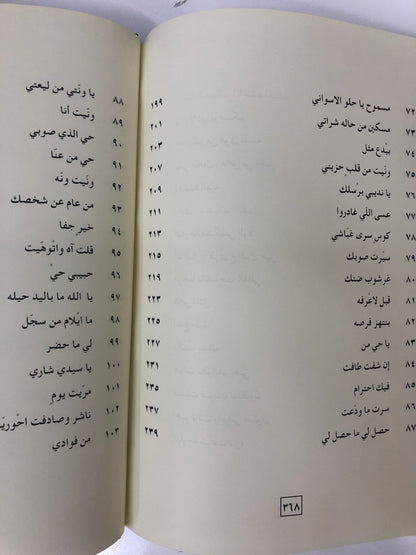 ٧٢ مسموح يا حلو الاسواني ١٩٩
٧٣ مسكين من حاله شراتي ٢٠١
٧٤ يبدع مثل ٢٠٣
٧٥ ونيت من قلبٍ حزيني ٢٠٧
٧٦ يا نديبي برْسلك ٢٠٩
٧٧ عسى اللّي غادروا ٢١١
٧٨ كوسٍ سرى غبّاشي ٢١٣
٧٩ سيّرت صوبك ٢١٥
٨٠ غرشوب ضنك ٢١٩
٨١ قبل لاعْرفه ٢٢٣
٨٢ بنتهز فرصه ٢٢٥
٨٣ يا حي من ٢٢٧
٨٤ إن شفت طافت ٢٣١
٨٥ فيك احترام ٢٣٥
٨٦ سرت ما ودّعت ٢٣٧
٨٧ حصل لي ما حصل لي ٢٣٩
٣٦٨
٨٨ يا ونّتي من ليعتي
٨٩ ونّيت أنا
٩٠ حي الذي صوبي
٩١ حي من عنّا
٩٢ ونّيت ونّه
٩٣ من عام عن شخصك
٩٤ خيرٍ جفا
٩٥ قلت آه واتْوهّيت
٩٦ حبيبي حيْ
٩٧ يا الله ما باليد حيله
٩٨ ما ايْلام من سجّل
٩٩ لي ما حضر
١٠٠ يا سيدي شاري
١٠١ مرّيت يومٍ
١٠٢ ناشر وصادفت
١٠٣ من فوادي